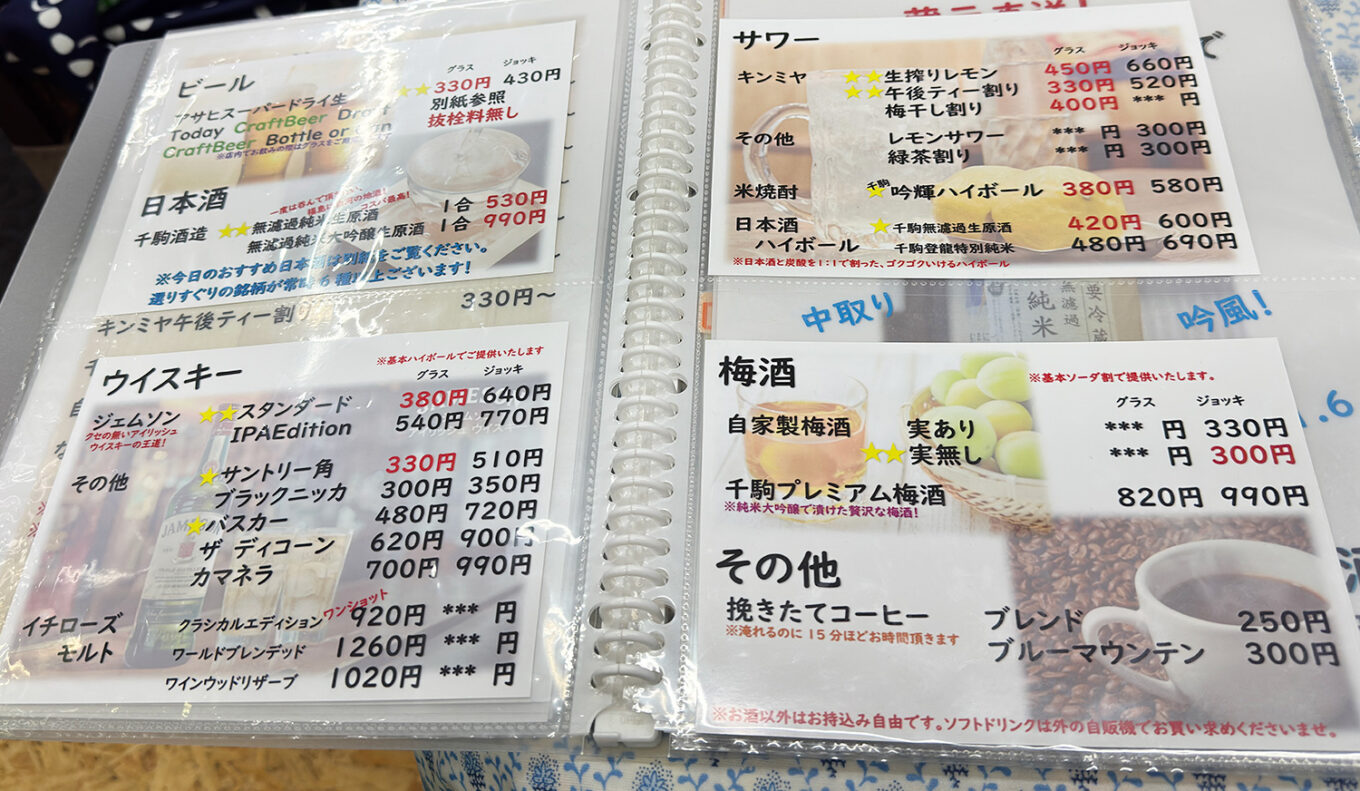 ビール
グラス ジョッキ
アサヒスーパードライ生 ★★330円 430円
Today CraftBeer Draft 別紙参照
CraftBeer Bottle or Can 抜栓料無し
※店内でお飲みの際はグラスをご
日本酒
一度は呑んで頂
コスパ最高!
千駒酒造 ★★無濾過純米生原酒 1合 530円
無濾過純米大吟醸生原酒 1合 990円
※今日のおすすめ日本酒は別紙をご覧ください。
選りすぐりの銘柄が常時 種以上ございます!
330円〜
キンミヤ午後ティー割
ウイスキー
※基本ハイボールでご提供いたします
グラス ジョッキ
ジェムソン ★★スタンダード 380円 640円
クセの無いアイリッシュ
ウイスキーの王道!
IPAEdition 540円 770円
その他 ★サントリー角 330円 510円
ブラックニッカ 300円 350円
★バスカー 480円 720円
ザ ディコーン 620円 900円
カマネラ 700円 990円
ワンショット
イチローズ
モルト
クラシカルエディション 920円 *** 円
ワールドブレンデッド 1260円 *** 円
ワインウッドリザーブ 1020円 *** 円
サワー
グラス ジョッキ
キンミヤ ★★生搾りレモン 450円 660円
★★午後ティー割り 330円 520円
梅干し割り 400円 *** 円
その他 レモンサワー *** 円 300円
緑茶割り *** 円 300円
米焼酎 ★千駒吟輝ハイボール 380円 580円
日本酒
ハイボール
★千駒無濾過生原酒 420円 600円
千駒登龍特別純米 480円 690円
※日本酒と炭酸を1:1で割った、ゴクゴクいけるハイボール
中取り
無濾過
純米
要冷蔵
吟風!
梅酒
※基本ソーダ割で提供いたします。
グラス ジョッキ
自家製梅酒 実あり *** 円 330円
★★実無し *** 円 300円
千駒プレミアム梅酒 820円 990円
※純米大吟醸で漬けた贅沢な梅酒!
その他
挽きたてコーヒー ブレンド 250円
※淹れるのに15分ほどお時間頂きます
ブルーマウンテン 300円
※お酒以外はお持込み自由です。ソフトドリンクは外の自販機でお買い求めくださいませ。